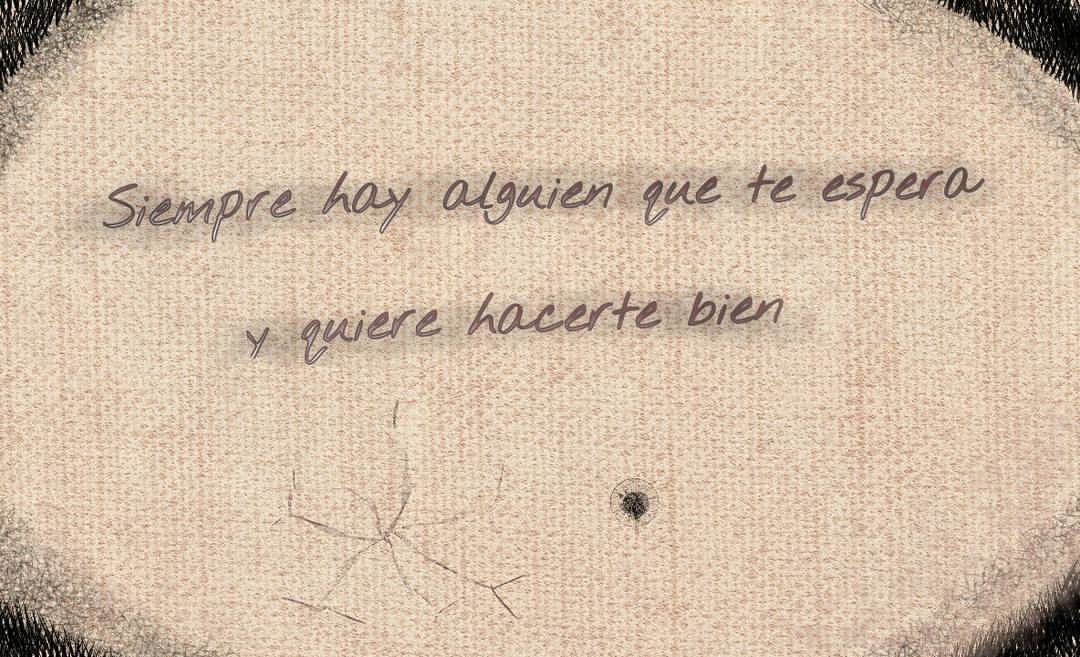 Siempre hay alguien que te espera
y quiere hacerte bien